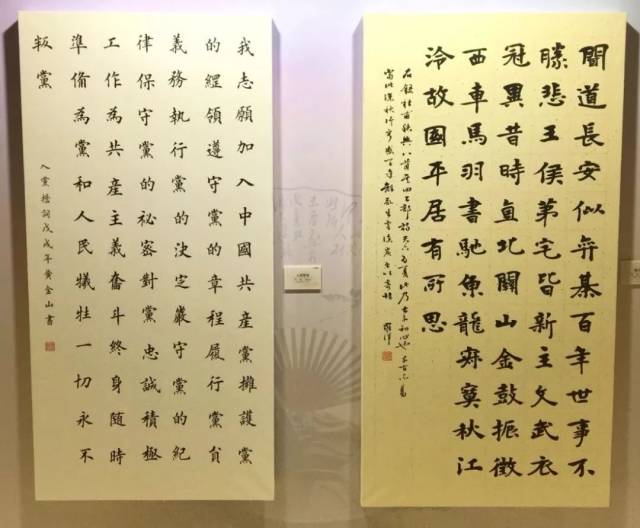 聞道長安似弈棊百年世事不
勝悲王侯第宅皆新主文武衣
冠異昔時直北關山金鼓振徵
西車馬羽書馳魚龍寂寞秋江
冷故國平居有所思
右錄杜甫秋興八首其四
我志願加入中國共產黨擁護黨
的綱領遵守黨的章程履行黨員
義務執行黨的決定嚴守黨的紀
律保守黨的祕密對黨忠誠積極
工作為共產主義奮斗終身隨時
準備為黨和人民犧牲一切永不
叛黨
入黨誓詞戊戌年黃金山書